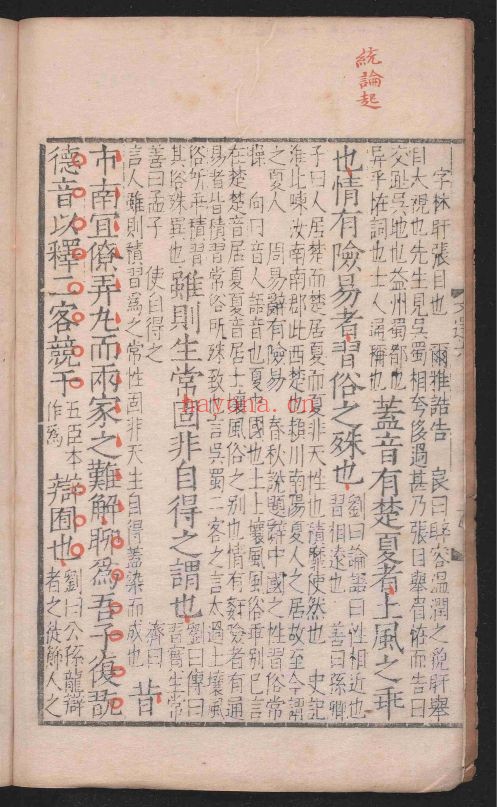 統論起
字林盱張目也 爾雅誥告 良曰睟容溫潤之貌盱舉
目大視也先生見吳蜀相夸侈過甚乃張目舉眉而告曰
交趾吳地也益州蜀郡也
异乎怪詞也士人通稱也
蓋音有楚夏者土風之乖
也情有險易者習俗之殊也
劉曰論語曰性相近也
習相遠也 善曰孫卿
子曰人居楚而楚居夏而夏非天性也積靡使然也 史記
淮北陳汝南南郡此西楚也潁川南陽夏人之居故至今謂
之夏人 周易辭有險易 春秋說題辭中國之性習俗常
操 向曰音人語音也夏中國也土土壤風風俗乖別也言
在楚楚音居夏夏音居土壤風俗之別也情有艱險者有通
易者皆積習常俗所殊致也言吳蜀二客之言太過土壤風
俗所再積習
其俗殊異也
雖則生常固非自得之謂也
劉曰傳曰
習實生常
善曰孟子 使自得之 濟曰
言人雖則積習為之常性固非天生自得蓋染而成也
昔
市南宜僚弄丸而兩家之難解聊為吾子復翫
德音以釋二客競于
五臣本
作焉
辯囿也
劉曰公孫龍辯
者之徒飾人之